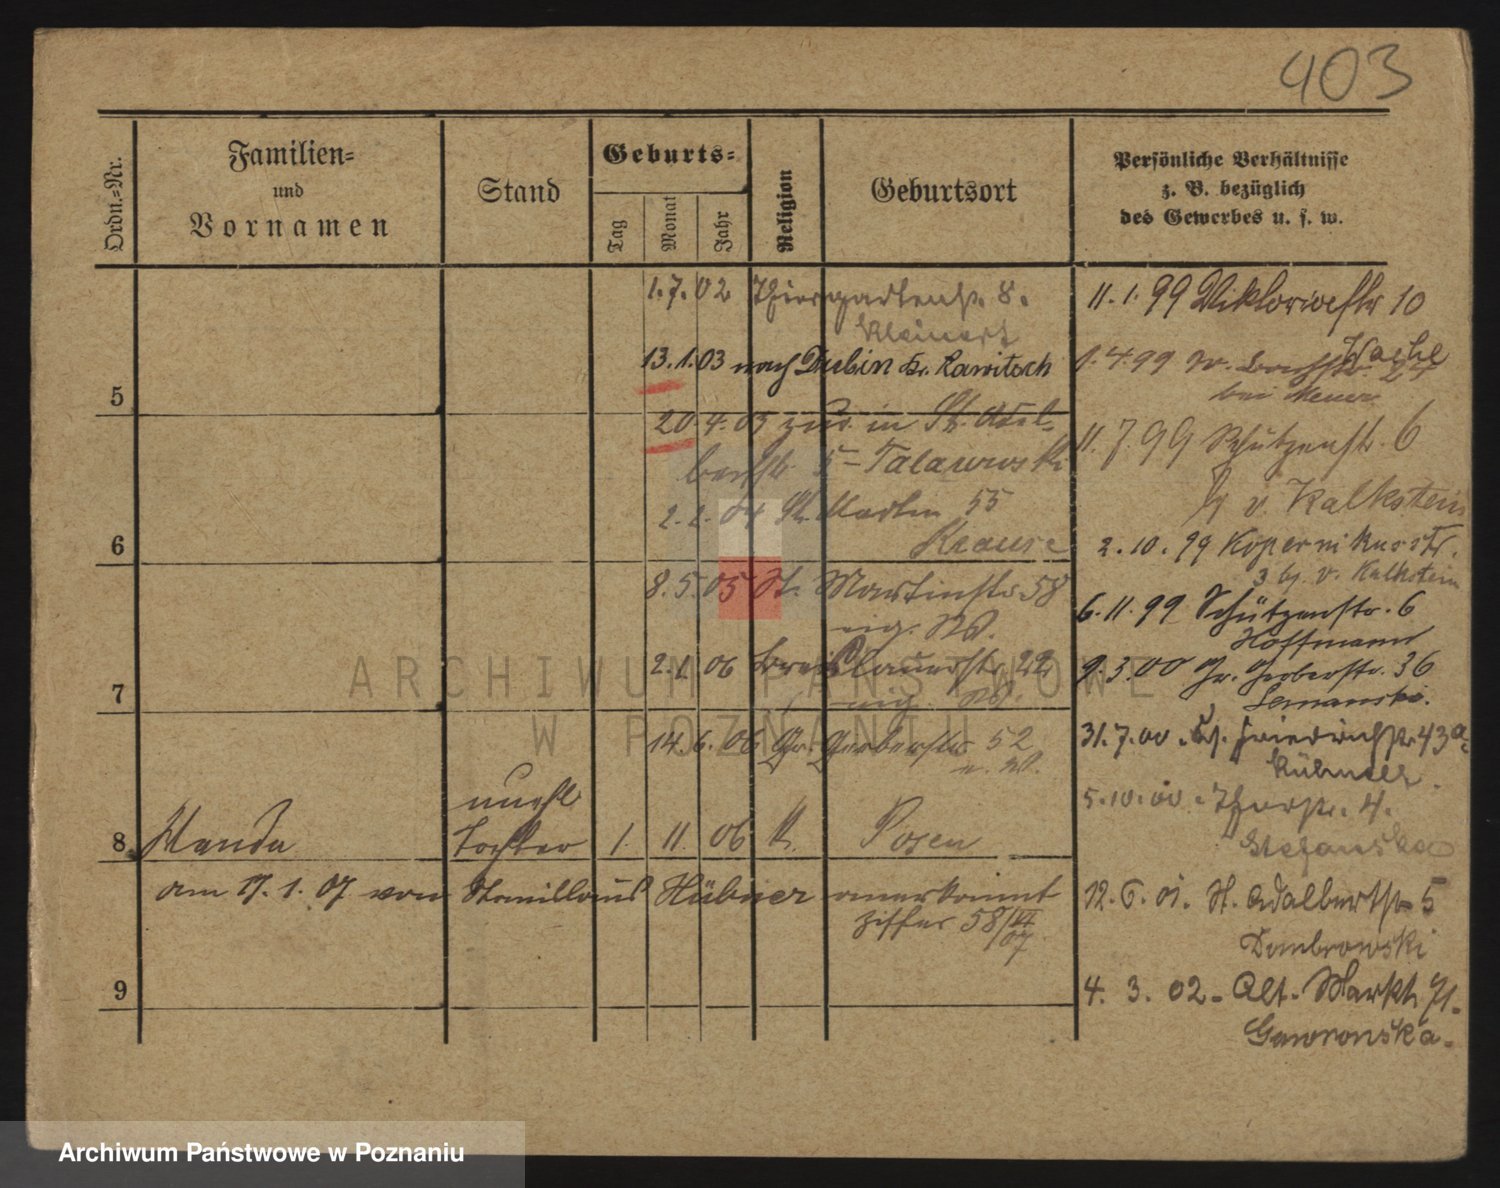 403
Ordn.-Nr.
Familien-
und
Vornamen
Stand
Geburts-
Tag
Monat
Jahr
Religion
Geburtsort
Persönliche Verhältnisse
z. B. bezüglich
des Gewerbes u. s. w.
1.7.02 Thiergartenstr. 8.
Kleinert
13.1.03 nach Dubin Kr. Rawitsch
5
20.4.03 zur. in St. Adal-
bertstr. 5 - Talarowski
2.2.04 St. Martin 55
Krause
6
8.5.05 St. Martinstr 58
eig. W.
2.1.06 Breslauerstr 22
eig. W.
7
14.6.06 Gr. Gerberstr 52
e. W.
unehl
8 Wanda Tochter 1. 11 06 k. Posen
am 17.1.07 von Stanillaus Hübner anerkannt
Ziffer 58/VI
07
9
11.1.99 Viktoriastr 10
1.4.99 24
bei
11.7.99 Schützenstr. 6
b/ v. Kalkstein
2.10.99 Kopernikusstr.
3 b/. v. Kalkstein
6.11.99 Schützenstr. 6
Hoffmann
9.3.00 Gr. Gerberstr. 36
Semanski.
31.7.00 Friedrichstr 43a
5.10.00 Thorstr. 4.
Stefanska
12.6.01. St. Adalbertstr 5
Dombrowski
4. 3. 02 - Alt. Markt 71.
Gaworonska.
ARCHIWUM PAŃSTWOWE
W POZNANIU
Archiwum Państwowe w Poznaniu